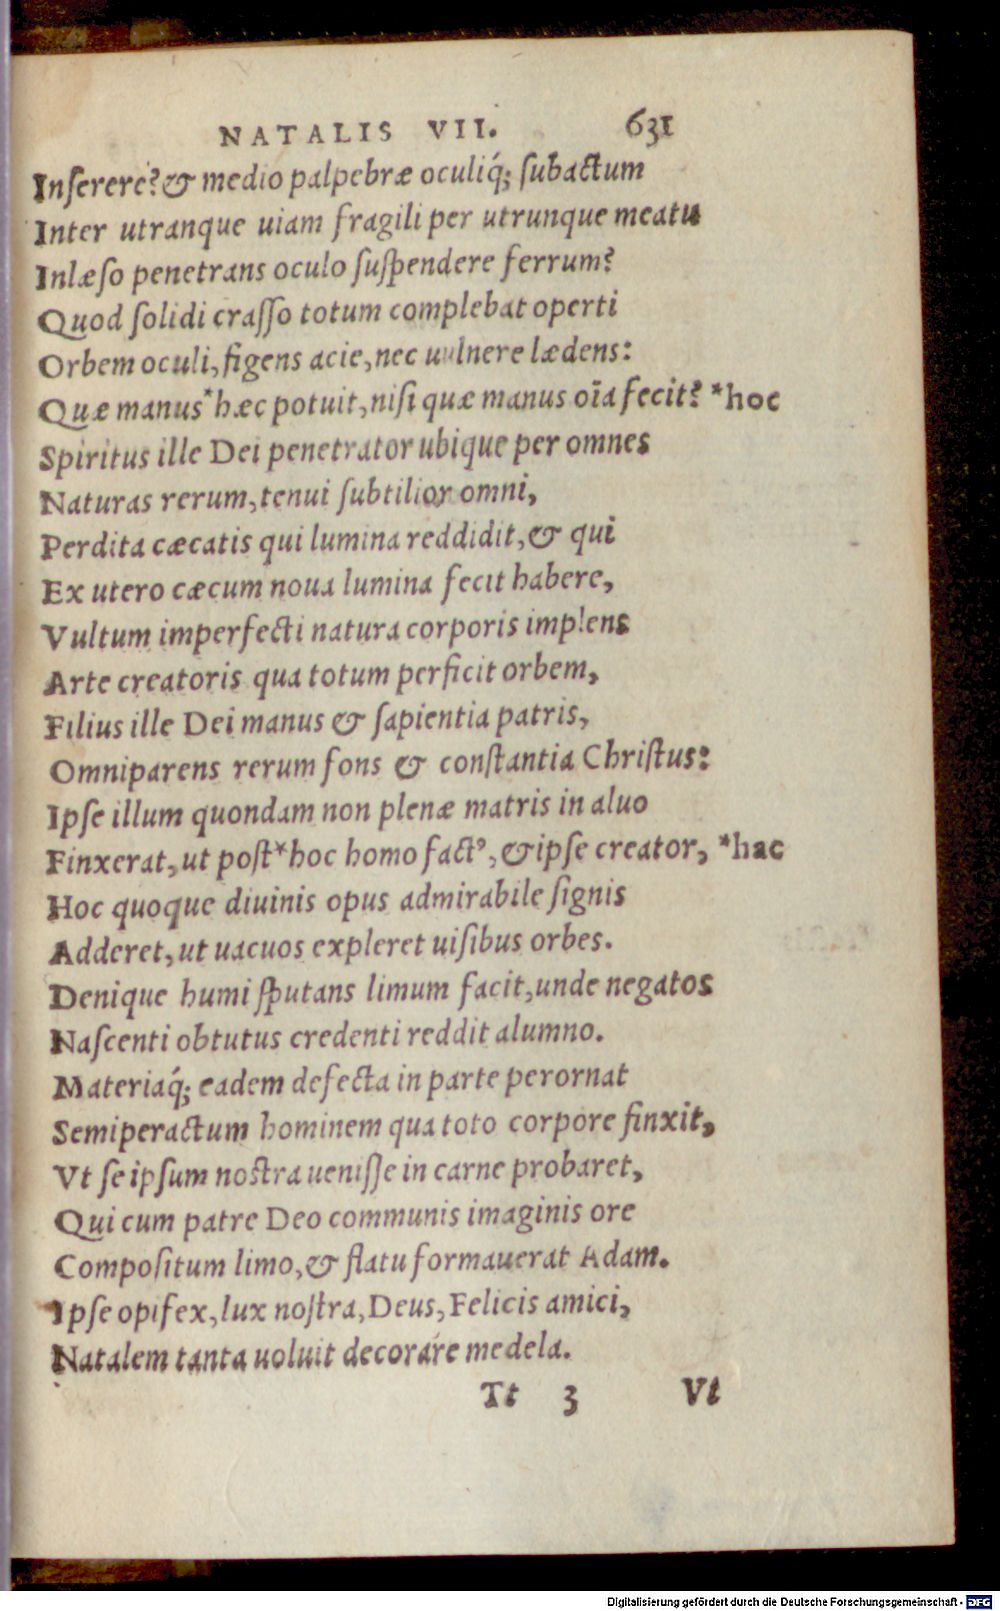 NATALIS VII. 631
Inserere? & medio palpebræ oculiq́; subactum
Inter utranque uiam fragili per utrunque meatu
Inlæso penetrans oculo suspendere ferrum?
Quod solidi crasso totum complebat operti
Orbem oculi, figens acie, nec uulnere lædens:
Quæ manus *hæc potuit, nisi quæ manus oīa fecit? *hoc
Spiritus ille Dei penetrator ubique per omnes
Naturas rerum, tenui subtilior omni,
Perdita cæcatis qui lumina reddidit, & qui
Ex utero cæcum noua lumina fecit habere,
Vultum imperfecti natura corporis implens
Arte creatoris qua totum perficit orbem,
Filius ille Dei manus & sapientia patris,
Omniparens rerum fons & constantia Christus:
Ipse illum quondam non plenæ matris in aluo
Finxerat, ut post *hoc homo factꝰ, & ipse creator, *hac
Hoc quoque diuinis opus admirabile signis
Adderet, ut uacuos expleret uisibus orbes.
Denique humi sputans limum facit, unde negatos
Nascenti obtutus credenti reddit alumno.
Materiaq́; eadem defecta in parte perornat
Semiperactum hominem qua toto corpore finxit,
Vt se ipsum nostra uenisse in carne probaret,
Qui cum patre Deo communis imaginis ore
Compositum limo, & flatu formauerat Adam.
Ipse opifex, lux nostra, Deus, Felicis amici,
Natalem tanta uoluit decorare medela.
Tt 3 Vt
Digitalisierung gefördert durch die Deutsche Forschungsgemeinschaft - DFG